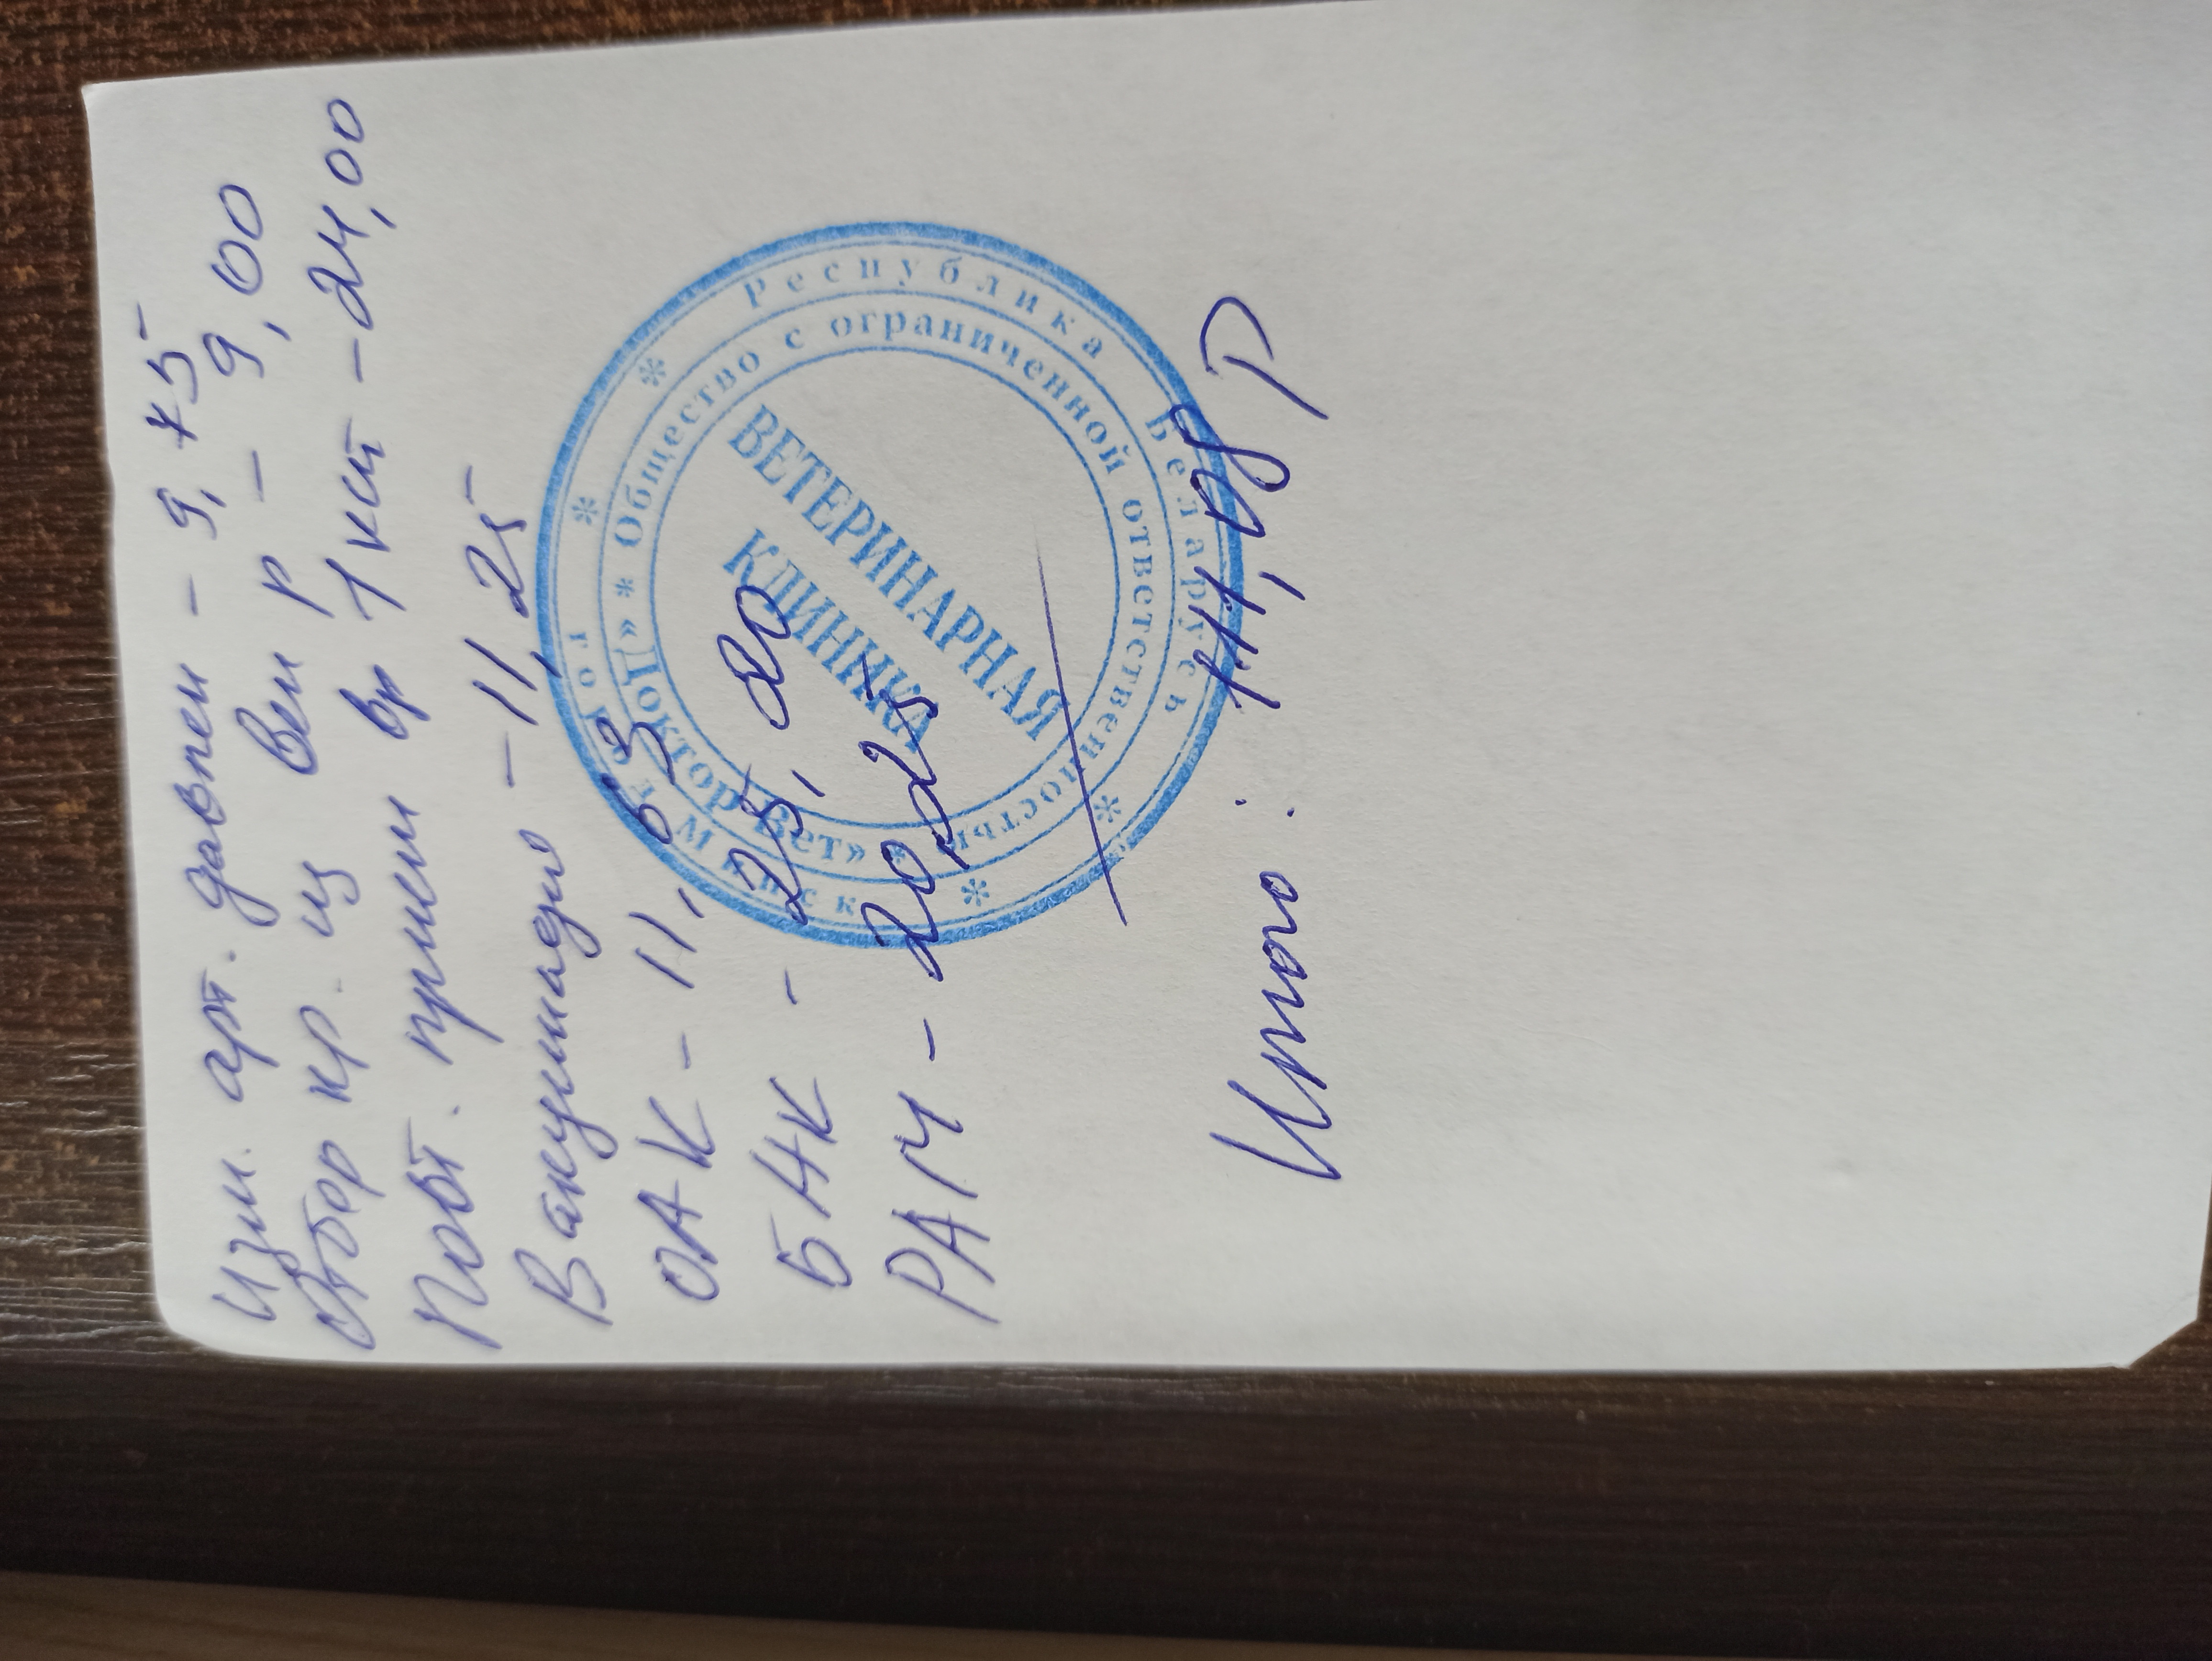 Изм. арт. давлен - 9,75
Отбор кр. из вен р - 9,00
Повт. прием вр 1 кат - 24,00
- 11,25
ОАК - 11,63
БАК - 25,20
РАМ - 20,25
Итого: 111,08 р
* Республика Беларусь * Минск *
* Общество с ограниченной ответственностью * «Доктор Вет»
ВЕТЕРИНАРНАЯ
КЛИНИКА